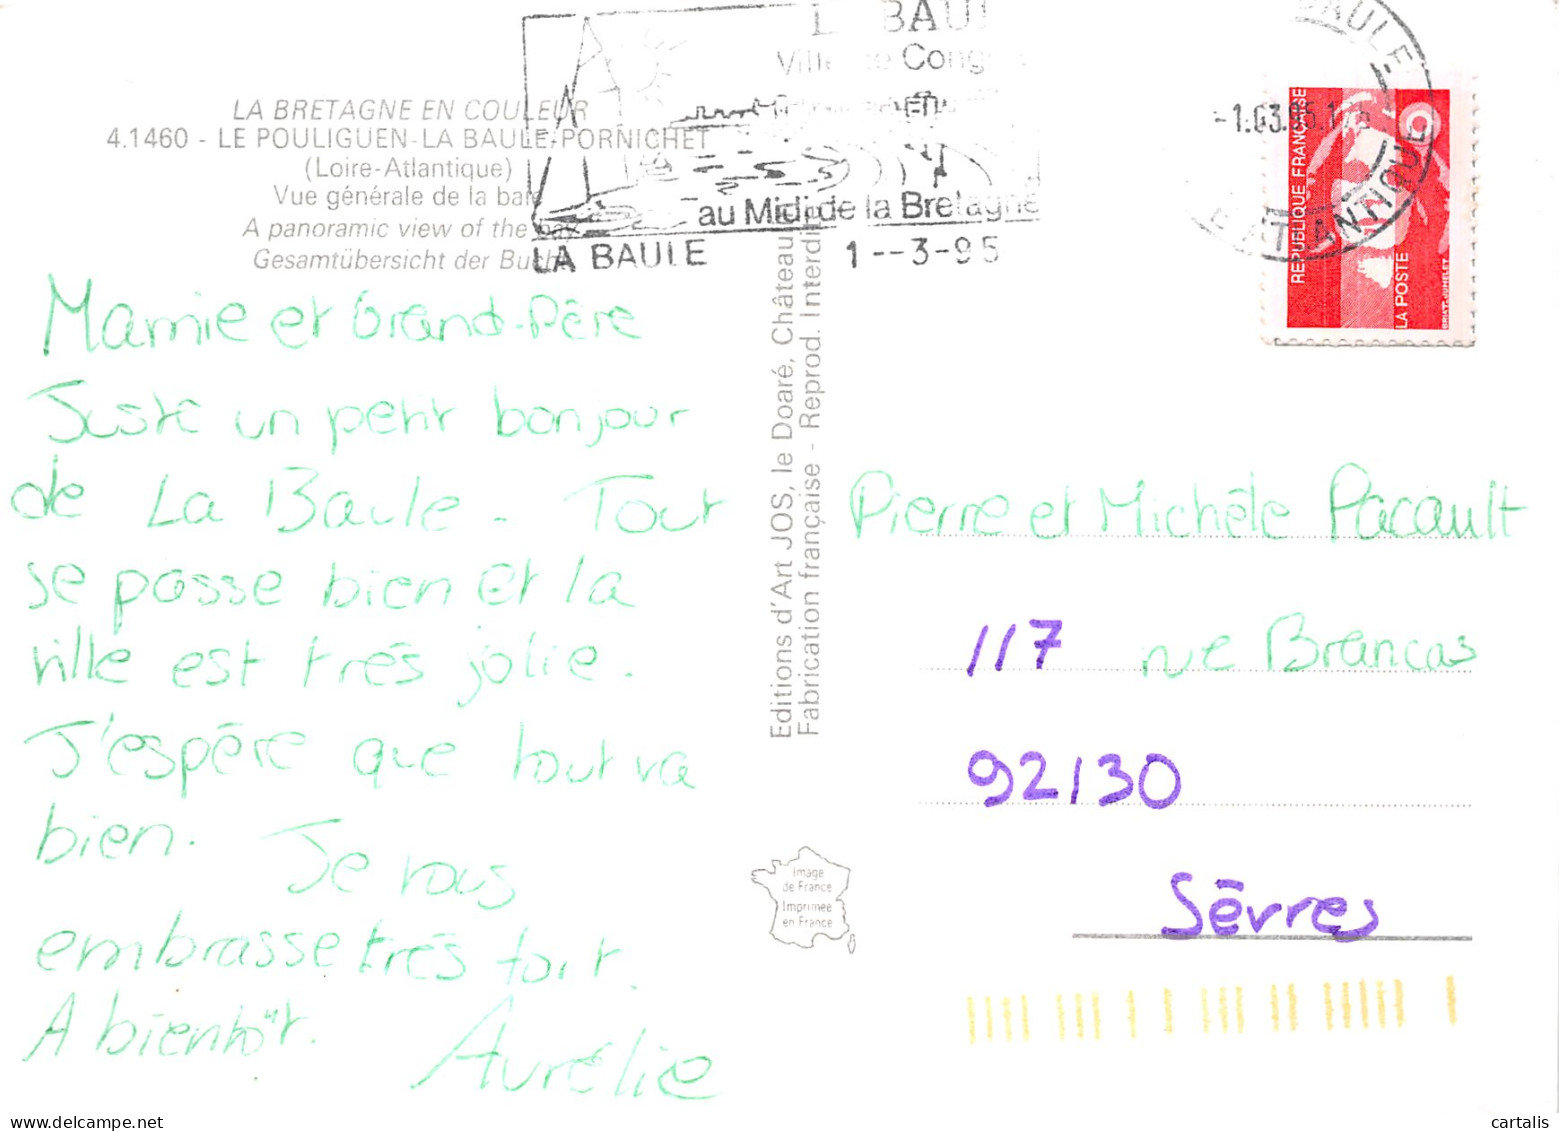 LA BRETAGNE EN COULEUR
4.1460 - LE POULIGUEN-LA BAULE-PORNICHET
(Loire-Atlantique)
Vue générale de la baie
A panoramic view of the bay
Gesamtübersicht der Bucht
LA BAULE
Ville de Congrès
au Midi de la Bretagne
LA BAULE
1--3-95
BAULE
ATLANTIQUE
REPUBLIQUE FRANÇAISE
LA POSTE
BRIAT-JUMELET
Mamie et Grand-Père
Juste un petit bonjour
de La Baule. Tout
se passe bien et la
ville est très jolie.
J'espère que tout va
bien. Je vous
embrasse très fort.
A bientôt.
Aurélie
Editions d'Art JOS, le Doaré, Châteaulin
Fabrication française - Reprod. Interdite
Pierre et Michèle Pacault
117 rue Brancas
92130
Sèvres
Image
de France
Imprimée
en France
cartalis